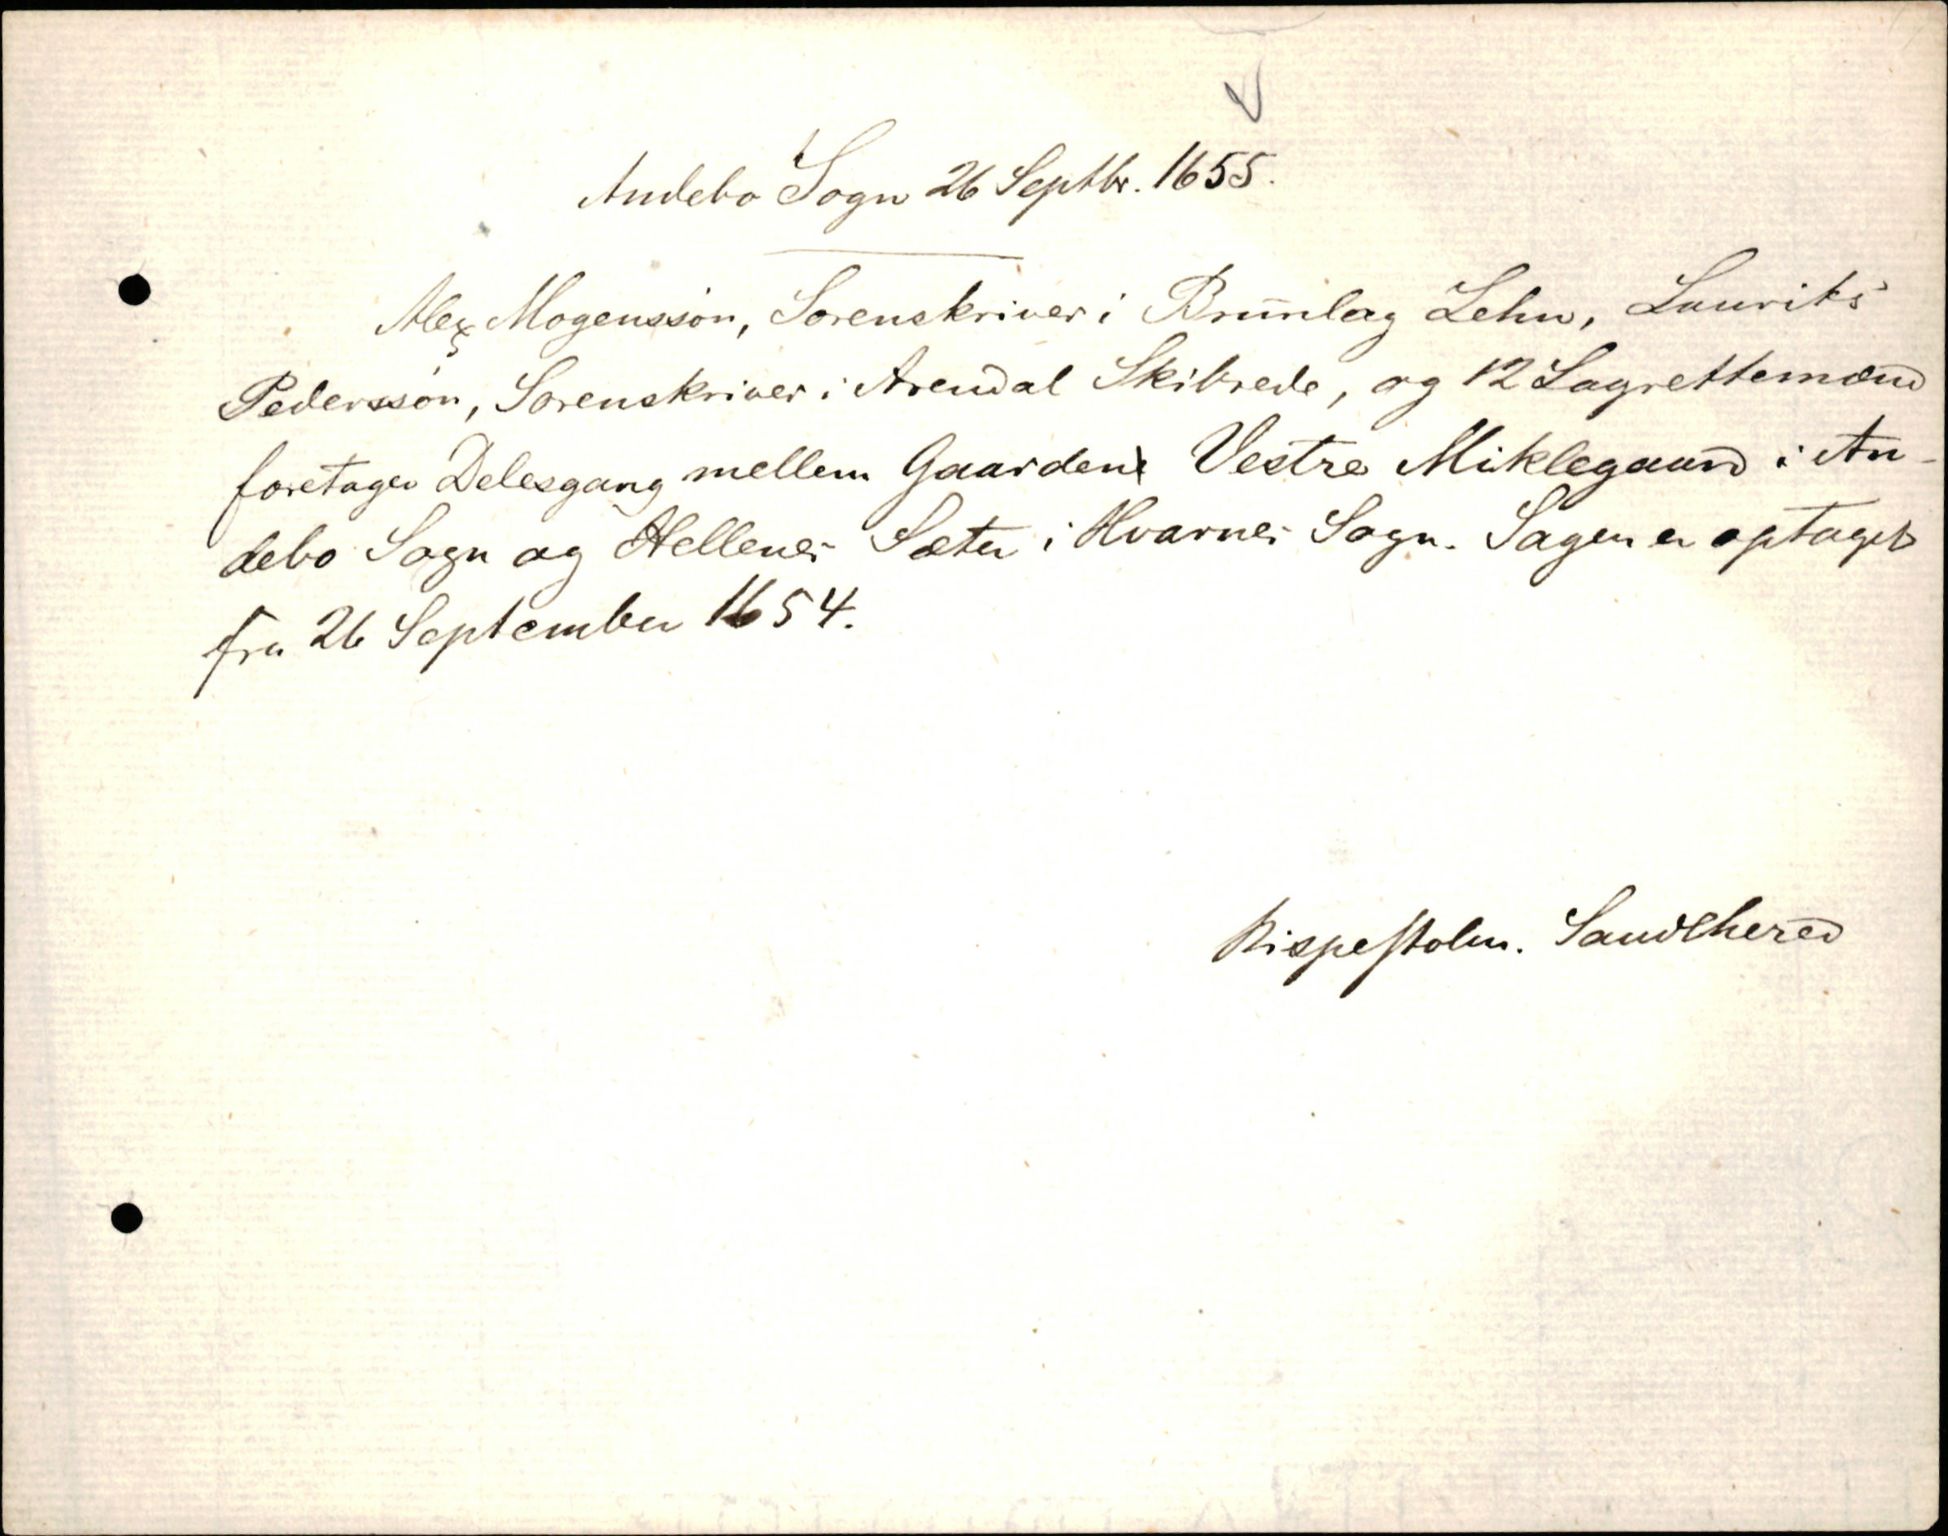 Andebo Sogn 26 Septbr. 1655.
Alex Mogenssøn, Sorenskriver i Brunlag Lehn, Lauriks
Pederssøn, Sorenskriver i Arendal Skibrede, og 12 Lagrettemænd
foretager Delesgang mellem Gaarden Vestre Miklegaard i An-
debo Sogn og Hellenes Sæter i Hvarnes Sogn. Sagen er optaget
fra 26 September 1654.
Sandeherred